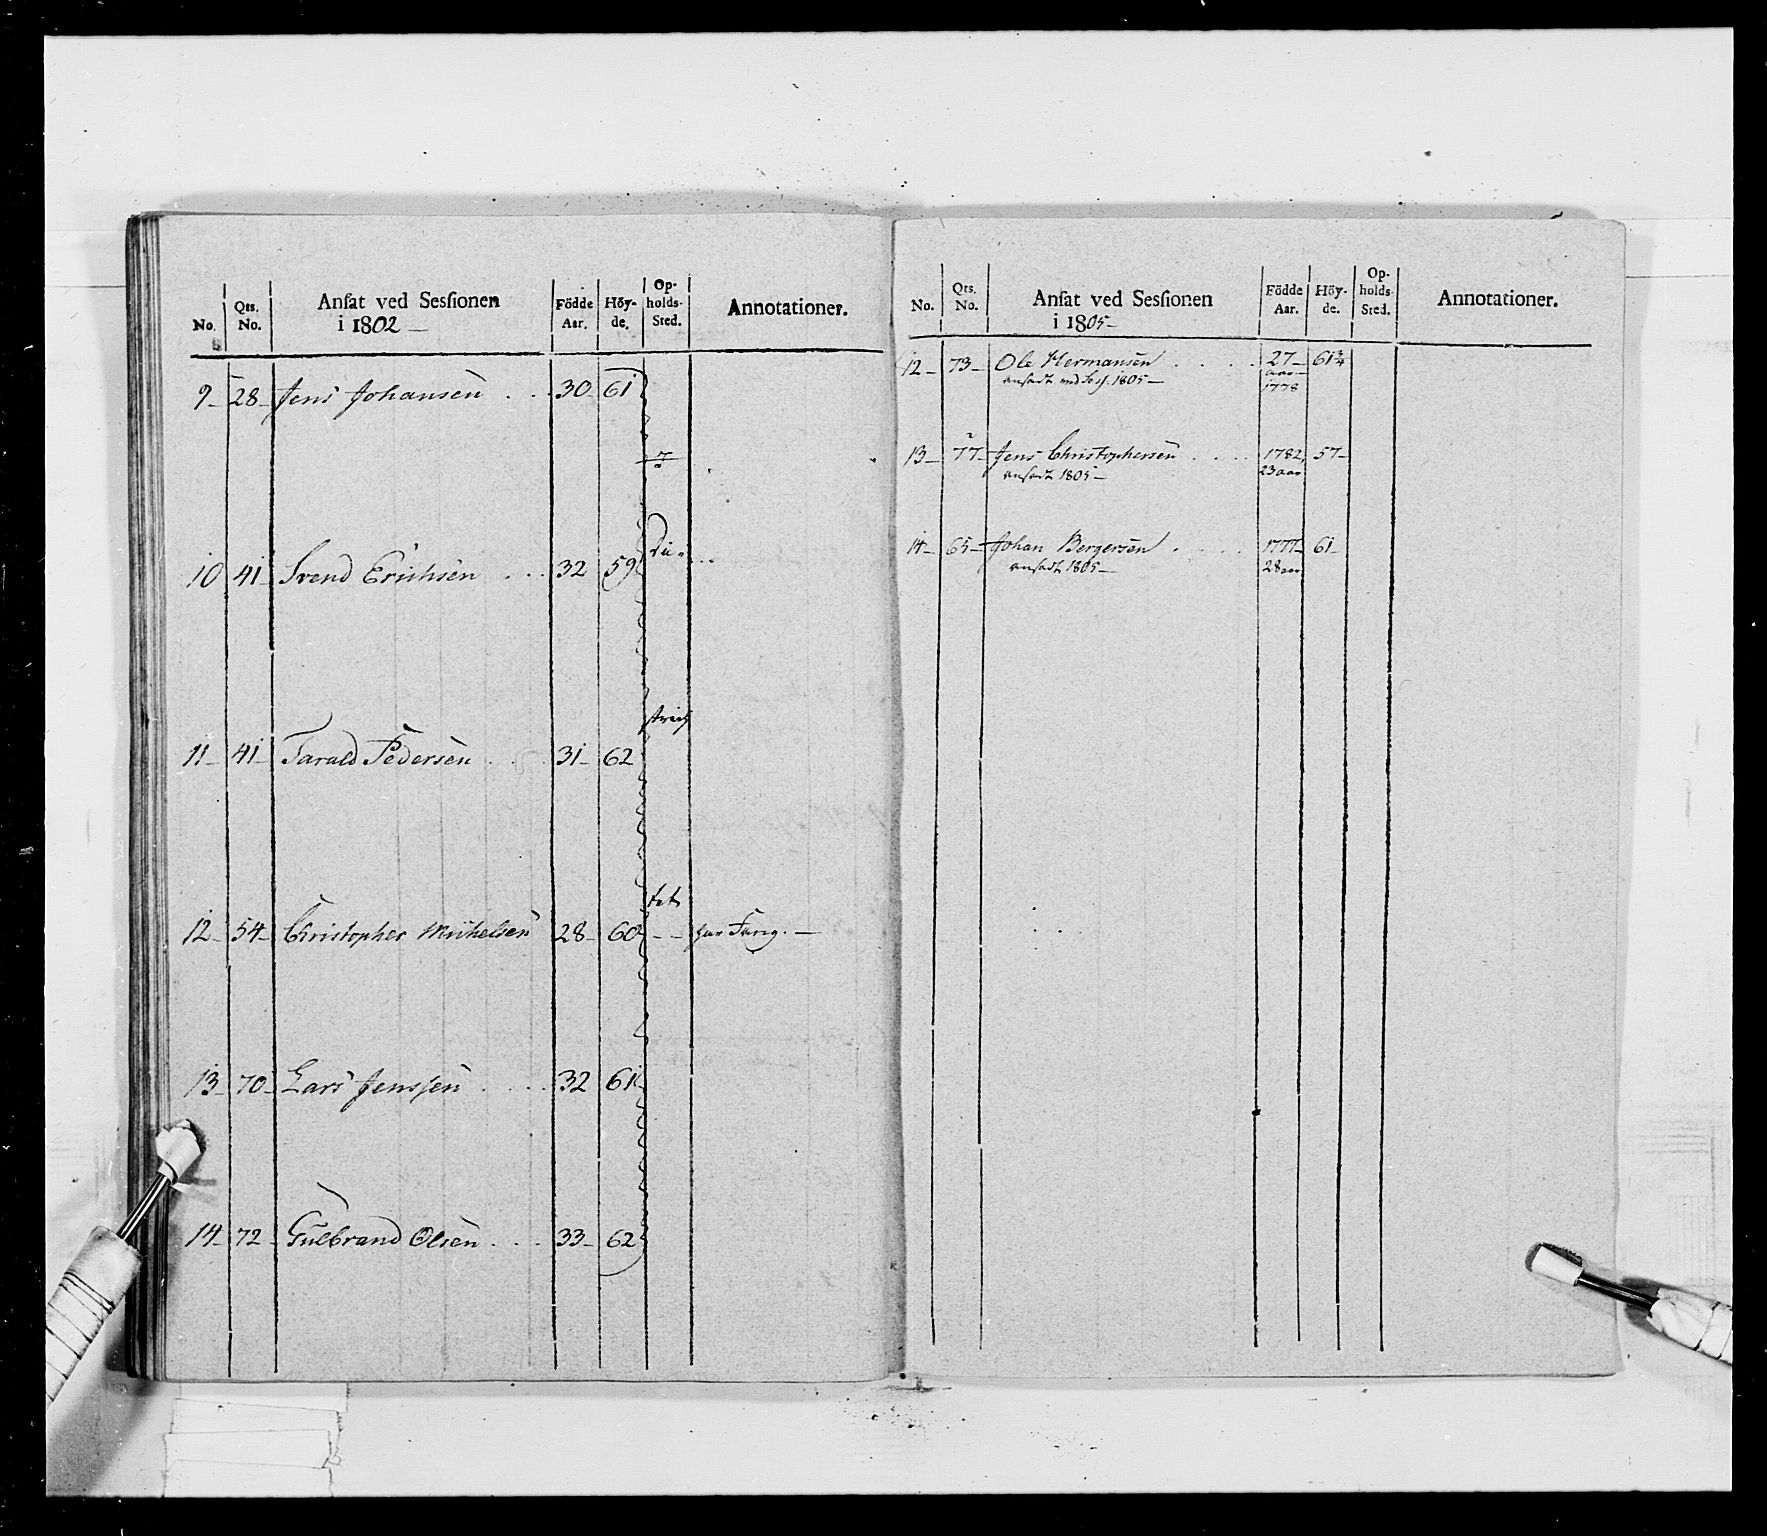 No. Qts. No. Ansat ved Sessionen i 1802 — Födde Aar. Höyde. Opholds-Sted. Annotationer.
9 – 28 – Jens Johansen . . . 30 – 61
7
10 41 Svend Erichsen . . . 32 59 Di-
11 – 41 – Tarald Pedersen . . . 31 – 62 strict
12 – 54 – Christopher Michelsen 28 – 60 tet – – har Fæng. —
13 – 70 – Lars Jenssen . . . . 32 61
14 – 72 – Gulbrand Olsen . . . 33 – 62
No. Qts. No. Ansat ved Sessionen i 1805 – Födde Aar. Höyde. Opholds-Sted. Annotationer.
12 – 73 – Ole Hermansen . . . . 27 – 61 3/4
ansadt ved Sess. 1805 – aar –
1778
13 – 77 – Jens Christophersen . . . . 1782, 57 –
ansadt 1805 – 23 aar
14 – 65 – Johan Bergersen . . . . 1777 – 61 –
ansadt 1805 – 28 aar